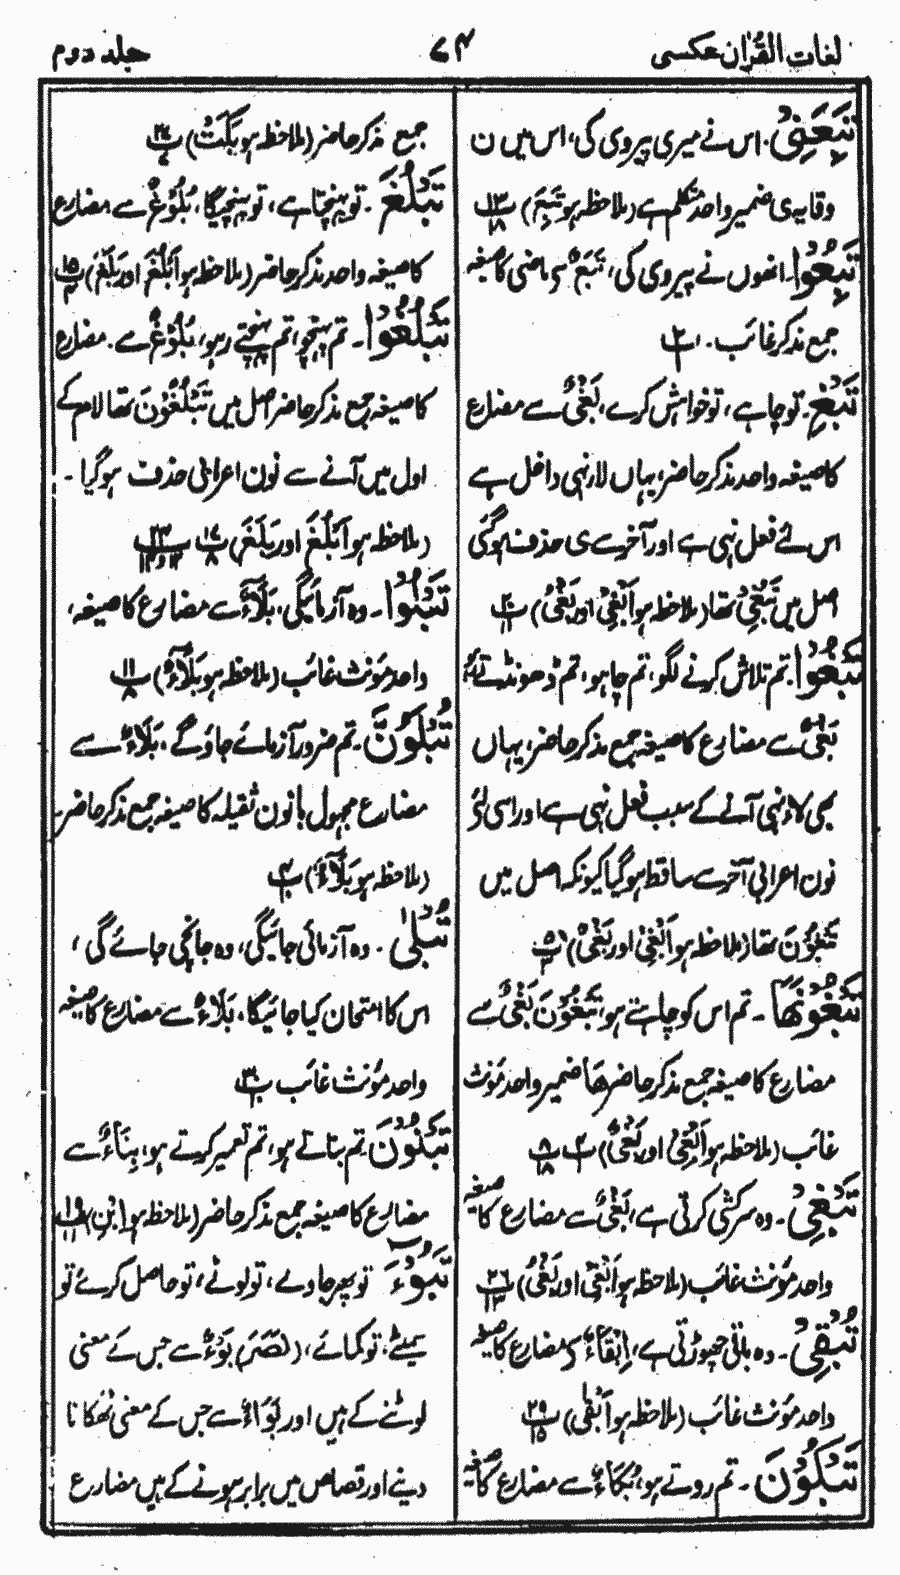 لغات القرآن عکسی
۷۴
جلد دوم
تَبِعَنِیْ. اس نے میری پیروی کی، اس میں ن
وقایہ ی ضمیر واحد متکلم ہے (ملاحظہ ہو تَبِعَ) پ۱۳ ۱۸
تَبِعُوْا۔ انھوں نے پیروی کی، تَبَعٌ سے ماضی کا صیغہ
جمع مذکر غائب۔ پ۲
تَبْغِ۔ تو چاہے، تو خواہش کرے، بَغْیٌ سے مضارع
کا صیغہ واحد مذکر حاضر، یہاں لا نہی داخل ہے
اس لئے فعل نہی ہے اور آخر سے ی حذف ہو گئی
اصل میں تَبْغِیْ تھا (ملاحظہ ہو اَبْغِیْ اور بَغْیٌ) پ۲۰ ۱۱
تَبْغُوْا. تم تلاش کرنے لگو، تم چاہو، تم ڈھونڈتے
بَغْیٌ سے مضارع کا صیغہ جمع مذکر حاضر، یہاں
بھی لاء نہی آنے کے سبب فعل نہی ہے اور اسی لئے
نون اعرابی آخر سے ساقط ہو گیا کیونکہ اصل میں
تَبْغُوْنَ تھا (ملاحظہ ہو اَبْغِیْ اور بَغْیٌ) پ۵
تَبْغُوْنَهَا۔ تم اس کو چاہتے ہو، تَبْغُوْنَ بَغْیٌ سے
مضارع کا صیغہ جمع مذکر حاضر هَا ضمیر واحد مؤنث
غائب (ملاحظہ ہو اَبْغِیْ اور بَغْیٌ) پ۴ پ۸ ۱۸
تَبْغِیْ۔ وہ سرکشی کرتی ہے، بَغْیٌ سے مضارع کا صیغہ
واحد مؤنث غائب (ملاحظہ ہو اَبْغِیْ اور بَغْیٌ) پ۲۶ ۱۳
تُبْقِیْ۔ وہ باقی چھوڑتی ہے، اِبْقَاءٌ کا مضارع کا صیغہ
واحد مؤنث غائب (ملاحظہ ہو اَبْقٰی) پ۲۹ ۱۵
تَبْكُوْنَ۔ تم روتے ہو، بُكَاءٌ سے مضارع کا صیغہ
جمع مذکر حاضر (ملاحظہ ہو بَكَتْ) پ۲۷ ۷
تَبْلُغَ۔ تو پہنچتا ہے، تو پہنچیگا، بُلُوْغٌ سے مضارع
کا صیغہ واحد مذکر حاضر (ملاحظہ ہو اَبْلُغَ اور بَلَغَ) پ۱۵ ۴
تَبْلُغُوْا۔ تم پہنچو، تم پہنچتے رہو، بُلُوْغٌ سے۔ مضارع
کا صیغہ جمع مذکر حاضر اصل میں تَبْلُغُوْنَ تھا لام کے
اول میں آنے سے نون اعرابی حذف ہو گیا۔
(ملاحظہ ہو اَبْلُغَ اور بَلَغَ) پ۱۷ ۸ پ۲۳ ۱۲ و ۱۳
تَبْلُوْا۔ وہ آزمائیگی، بَلَآءٌ سے مضارع کا صیغہ،
واحد مؤنث غائب (ملاحظہ ہو بَلَآءٌ) پ۱۱ ۸
تُبْلَوُنَّ۔ تم ضرور آزمائے جاؤ گے، بَلَاءٌ سے
مضارع مجہول بانون ثقیلہ کا صیغہ جمع مذکر حاضر۔
(ملاحظہ ہو بَلَآءٌ) پ۴ ۱۰
تُبْلٰی۔ وہ آزمائی جائیگی، وہ جانچی جائے گی،
اس کا امتحان کیا جائیگا، بَلَاءٌ سے مضارع کا صیغہ
واحد مؤنث غائب پ۳۰
تَبْنُوْنَ۔ تم بناتے ہو، تم تعمیر کرتے ہو، بِنَاءٌ سے
مضارع کا صیغہ جمع مذکر حاضر (ملاحظہ ہو اِبْنِ) پ۱۹ ۱۱
تَبُوْءَ۔ تو پھر جاوے، تو لوٹے، تو حاصل کرے تو
سمیٹے، تو کمائے، (نَصَرَ) بَوْءٌ سے جس کے معنی
لوٹنے کے ہیں اور بَوَاءٌ سے جس کے معنی ٹھکانا
دینے اور قصاص میں برابر ہونے کے ہیں مضارع